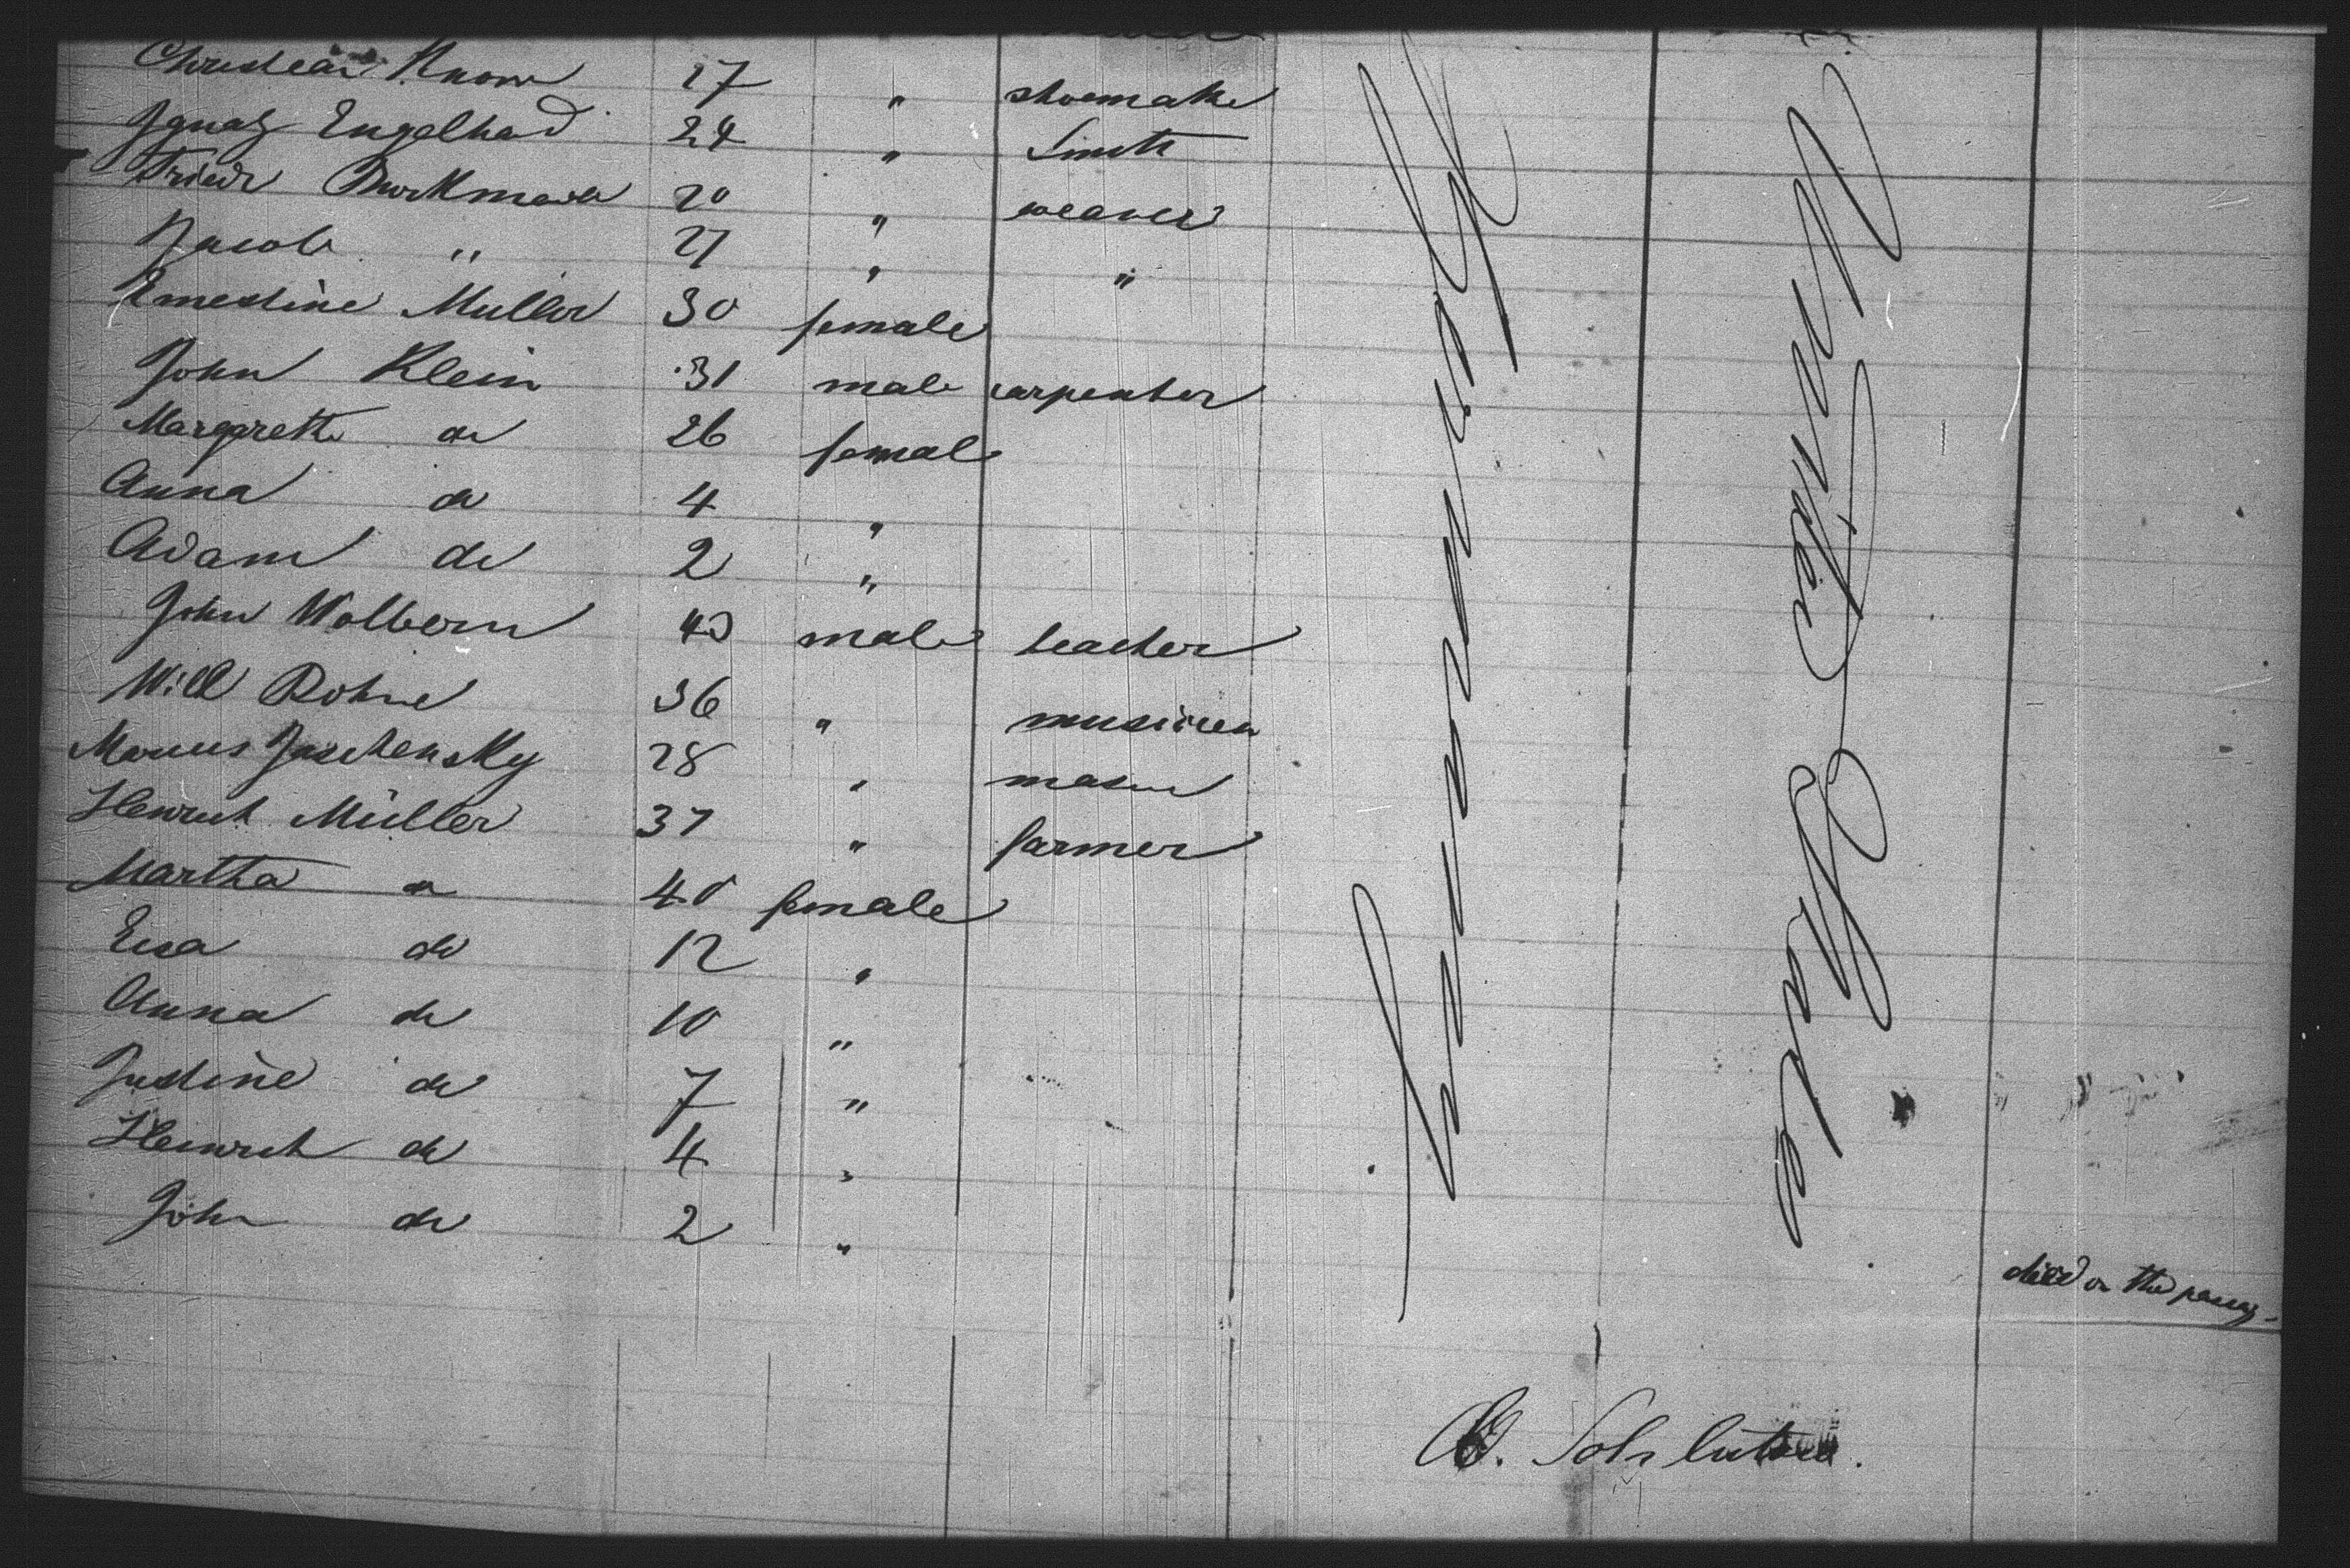 Christian Knorr 17 " shoemake
Ignatz Engelhad 24 " Smith
Friedr Burkmaile 20 " weaver
Jacob " 27 " "
Ernestine Muller 30 female
John Klein 31 male carpenter
Margareth do 26 female
Anna do 4 "
Adam do 2 "
John Wolbern 40 male teacher
Will Rohne 36 " musicien
Marcus Jaschensky 28 " mason
Heinrich Müller 37 " farmer
Martha " 40 female
Eva do 12 "
Anna do 10 "
Justine do 7 "
Heinrich do 4 "
John do 2 " died on the passag
Germany
United States
Schluter.